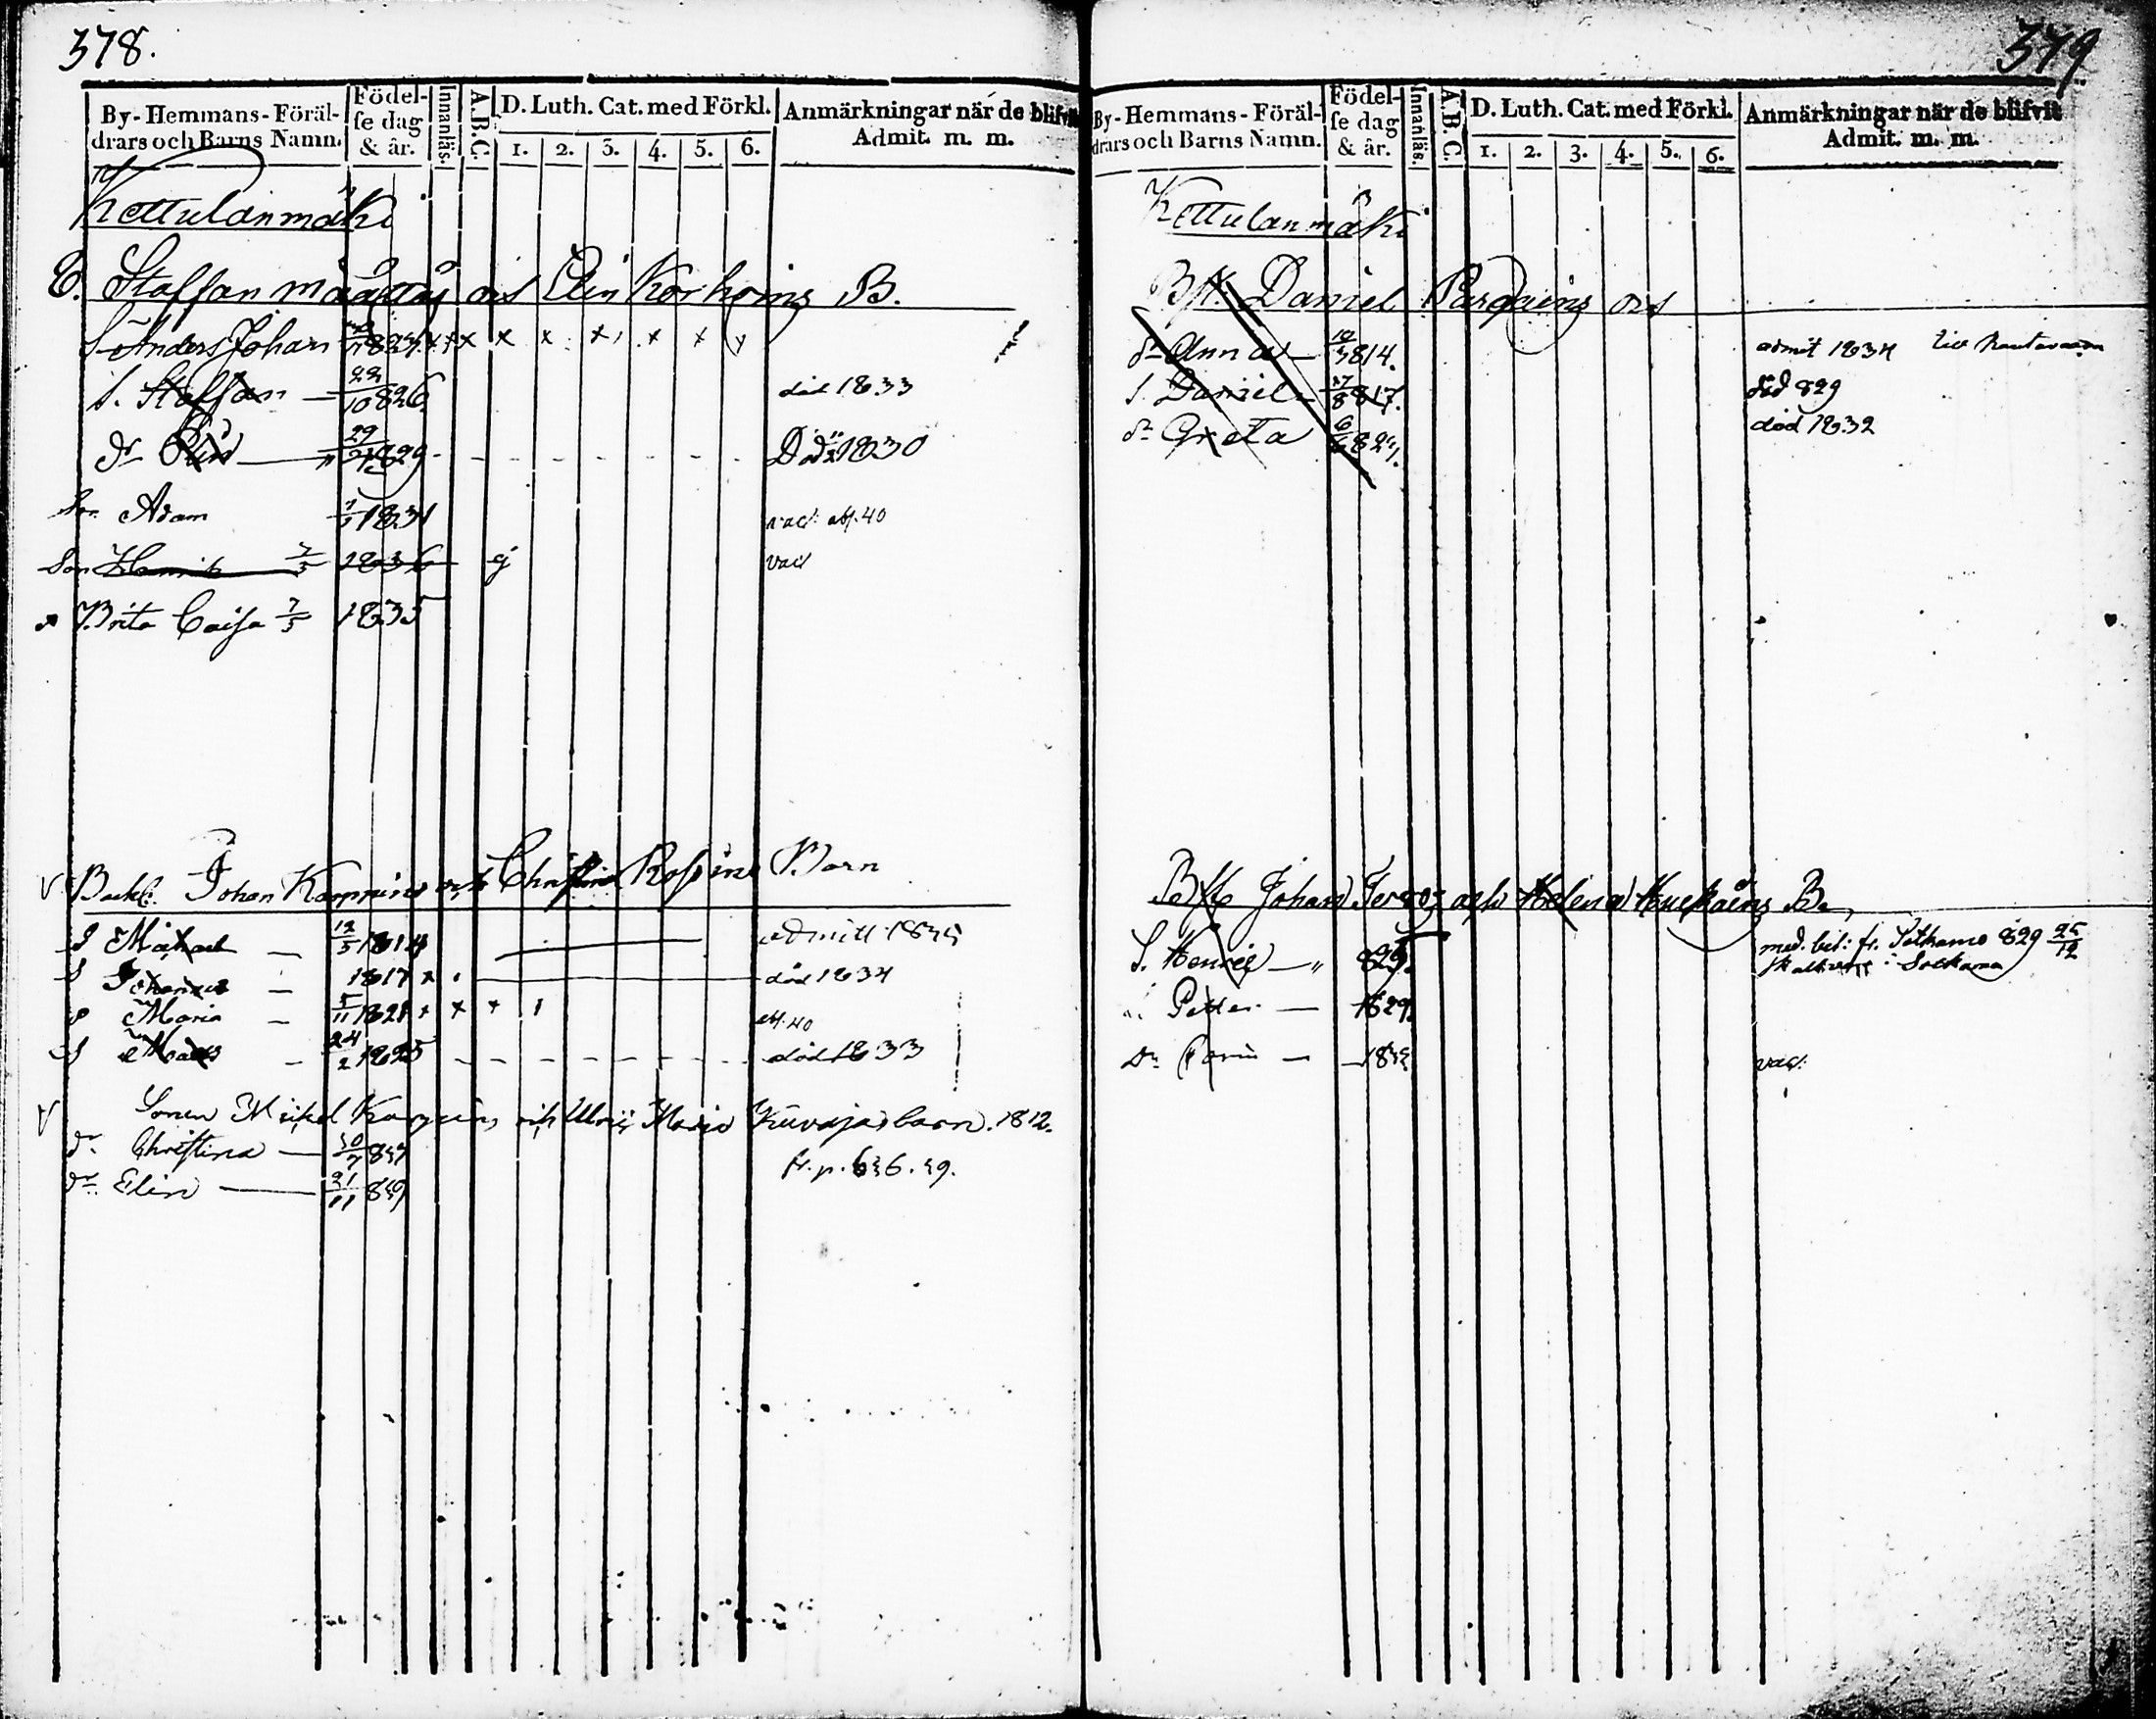 378.
By-Hemmans-Föräl-
drars och Barns Namn.
Födel-
se dag
& år.
Innanläs.
A.B.C.
D. Luth. Cat. med Förkl.
1. 2. 3. 4. 5. 6.
Anmärkningar när de blifvit
Admit. m. m.
Kettulanmäki
Staffan Määttäs och Elin Korhoins B.
S. Anders Johan 1824. x x x x x x x x y
S. Staffan — 22/10 826 död 1833
dr Elin — 29/ 1829 - - - - - - - Död 1830
Son Adam 1831 vac: abs. 40
Son Henrik 7/5 1836 ej vac
Brita Caisa 7/5 1835
V Backst. Johan Karppins och Christina Rossins Barn
S Michael — 12/5 1814 admitt 1835
S Johannes — 1817 x död 1834
Maria — 5/11 1821 x x x abs. 40
S Mats — 24/2 1825 - - - - - - - död 1833
V Sonen Mickel Karppins och Ulrii: Maria Kuvajas barn. 1812.
dr Christina — 30/7 837 fr. p. 636. 39.
dr Elin — 21/11 839
379
By-Hemmans-Föräl-
drars och Barns Namn.
Födel-
se dag
& år.
Innanläs.
A.B.C.
D. Luth. Cat. med Förkl.
1. 2. 3. 4. 5. 6.
Anmärkningar när de blifvit
Admit. m. m.
Kettulanmäki
Bst. Daniel Pargains och
dr Anna — 814. admit 1834 till Rautavaara
S. Daniel — 17/8 817. död 829
dr Greta 6/ 824. död 1832
Bst Johan och Helena B.
S. Henric — " 825. med. bet: fr. Sotkamo 829 25/12
i Sotkamo
Petter — 1829.
dr Carin — 1833 vac: